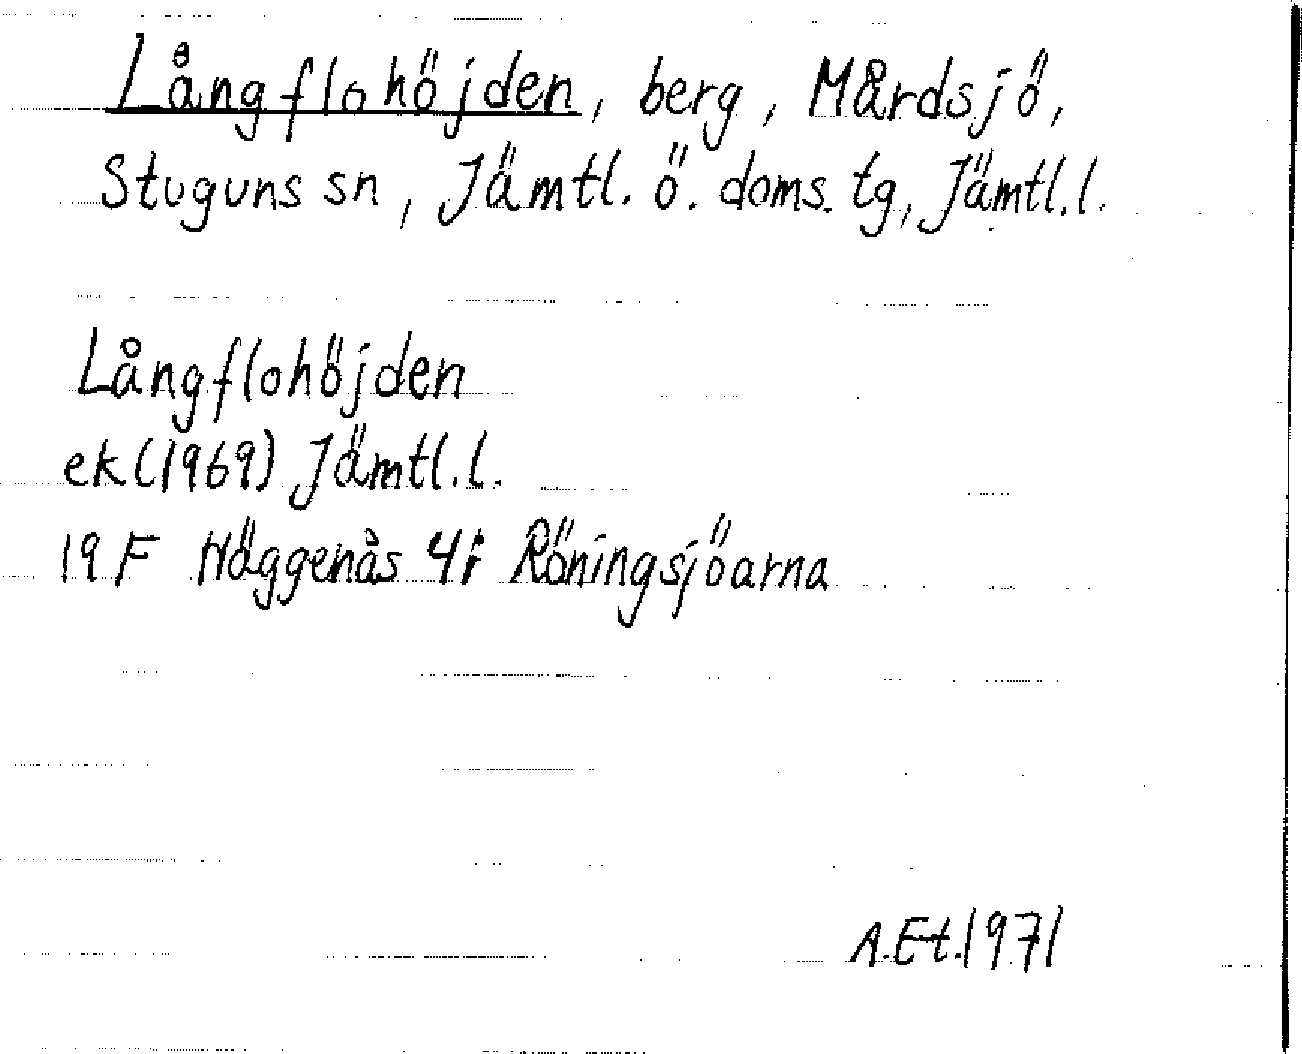 Långflohöjden, berg, Mårdsjö,
Stuguns sn, Jämtl. ö. doms. tg, Jämtl. l.
Långflohöjden
ek (1969) Jämtl. l.
19 F Häggenås 4i Röningsjöarna
A. Et. 1971